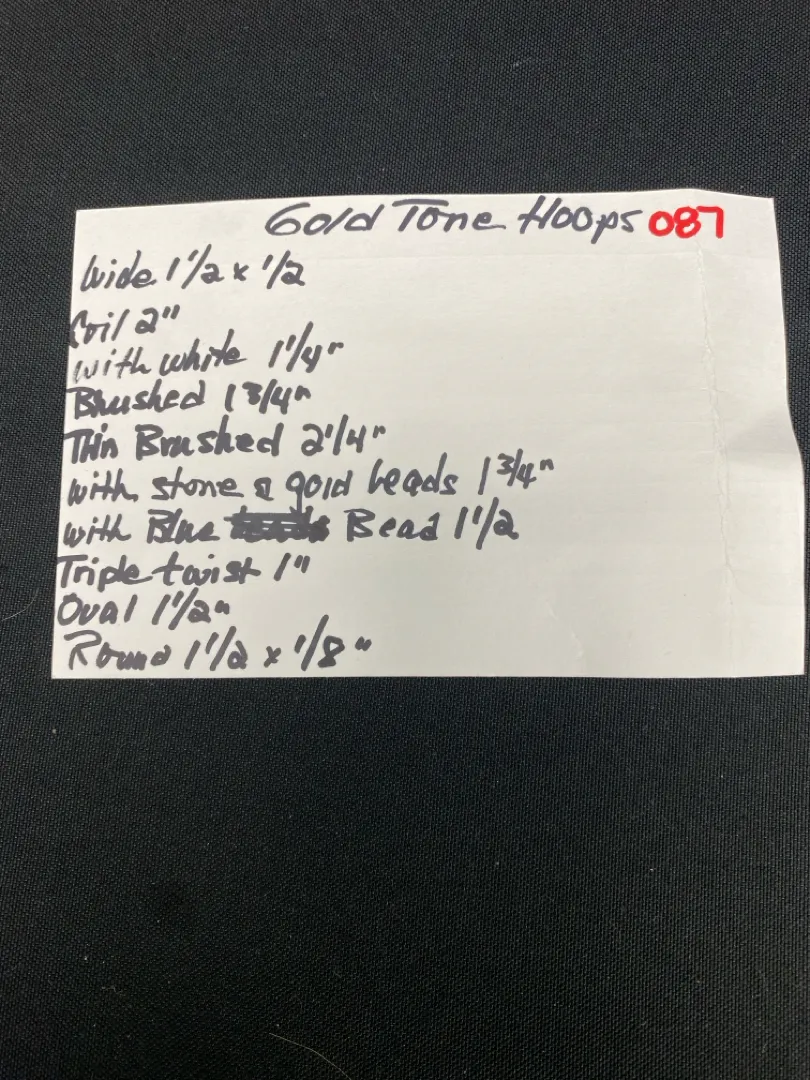 Gold Tone Hoops 087
Wide 1 1/2 x 1/2
Coil 2"
with white 1 1/4"
Brushed 1 3/4"
Thin Brushed 2 1/4"
with stone & gold beads 1 3/4"
with Blue Bead 1 1/2
Triple twist 1"
Oval 1 1/2"
Round 1 1/2 x 1/8"